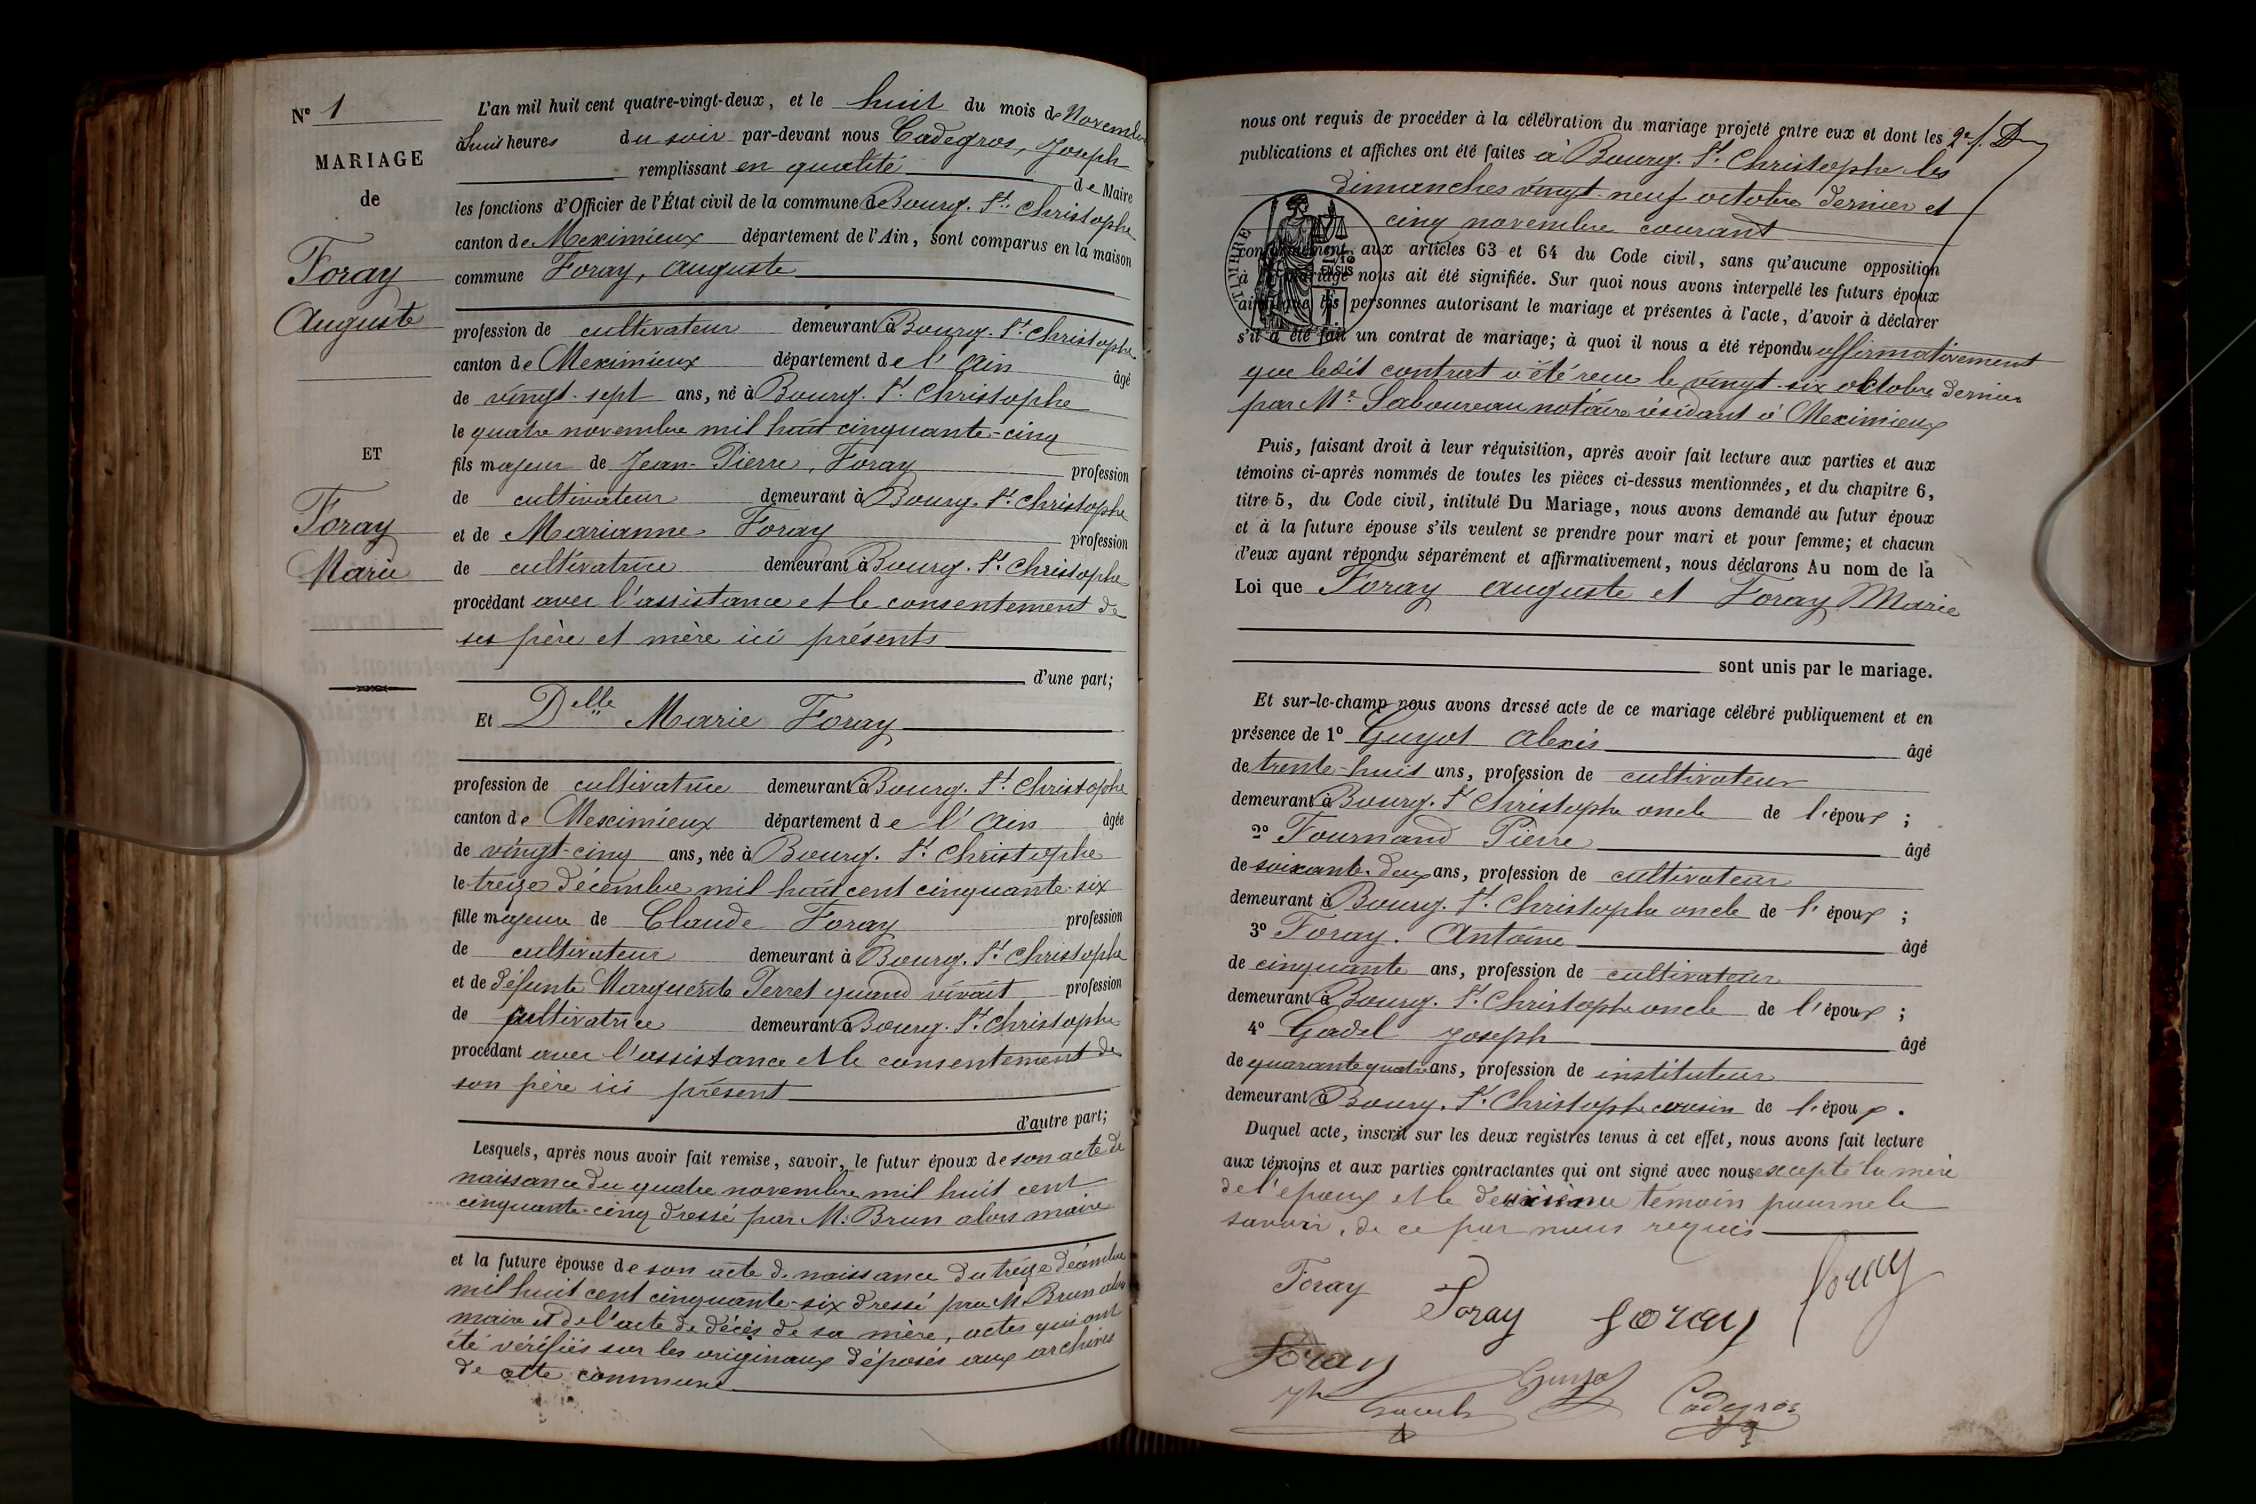 N° 1
MARIAGE
de
Foray
Auguste
ET
Foray
Marie
L'an mil huit cent quatre-vingt-deux, et le huit du mois de Novembre
à huit heures du soir par-devant nous Cadegros, Joseph
remplissant en qualité de Maire
les fonctions d'Officier de l'État civil de la commune de Bourg. St. Christophe
canton de Meximieux département de l'Ain, sont comparus en la maison
commune Foray, Auguste
profession de cultivateur demeurant à Bourg. St. Christophe
canton de Meximieux département de l'Ain âgé
de vingt-sept ans, né à Bourg. St. Christophe
le quatre novembre mil huit cinquante-cinq
fils majeur de Jean-Pierre, Foray profession
de cultivateur demeurant à Bourg. St. Christophe
et de Marianne Foray profession
de cultivatrice demeurant à Bourg. St. Christophe
procédant avec l'assistance et le consentement de
ses père et mère ici présents
d'une part;
Et Delle Marie Foray
profession de cultivatrice demeurant à Bourg. St. Christophe
canton de Meximieux département de l'Ain âgée
de vingt-cinq ans, née à Bourg. St. Christophe
le treize décembre mil huit cent cinquante-six
fille majeure de Claude Foray profession
de cultivateur demeurant à Bourg. St. Christophe
et de défunte Marguerite Perret quand vivait profession
de cultivatrice demeurant à Bourg. St. Christophe
procédant avec l'assistance et le consentement de
son père ici présent
d'autre part;
Lesquels, après nous avoir fait remise, savoir, le futur époux de son acte de
naissance du quatre novembre mil huit cent
cinquante-cinq dressé par M. Brun alors maire
et la future épouse de son acte de naissance du treize décembre
mil huit cent cinquante-six dressé par M. Brun alors
maire et de l'acte de décès de sa mère, actes qui ont
été vérifiés sur les originaux déposés aux archives
de cette commune
nous ont requis de procéder à la célébration du mariage projeté entre eux et dont les
publications et affiches ont été faites à Bourg. St. Christophe les
dimanches vingt-neuf octobre dernier et
cinq novembre courant
conformément aux articles 63 et 64 du Code civil, sans qu'aucune opposition
à ce mariage nous ait été signifiée. Sur quoi nous avons interpellé les futurs époux
ainsi que les personnes autorisant le mariage et présentes à l'acte, d'avoir à déclarer
s'il a été fait un contrat de mariage; à quoi il nous a été répondu affirmativement
que ledit contrat a été reçu le vingt-six octobre dernier
par Me Saboureau notaire résidant à Meximieux
TIMBRE
Puis, faisant droit à leur réquisition, après avoir fait lecture aux parties et aux
témoins ci-après nommés de toutes les pièces ci-dessus mentionnées, et du chapitre 6,
titre 5, du Code civil, intitulé Du Mariage, nous avons demandé au futur époux
et à la future épouse s'ils veulent se prendre pour mari et pour femme; et chacun
d'eux ayant répondu séparément et affirmativement, nous déclarons Au nom de la
Loi que Foray Auguste et Foray Marie
sont unis par le mariage.
Et sur-le-champ nous avons dressé acte de ce mariage célébré publiquement et en
présence de 1° Guyot Alexis âgé
de trente-huit ans, profession de cultivateur
demeurant à Bourg. St Christophe oncle de l'époux ;
2° Fournand Pierre âgé
de soixante-deux ans, profession de cultivateur
demeurant à Bourg. St. Christophe oncle de l'époux ;
3° Foray. Antoine âgé
de cinquante ans, profession de cultivateur
demeurant à Bourg. St. Christophe oncle de l'époux ;
4° Gadel Joseph âgé
de quarante quatre ans, profession de instituteur
demeurant à Bourg. St. Christophe cousin de l'époux.
Duquel acte, inscrit sur les deux registres tenus à cet effet, nous avons fait lecture
aux témoins et aux parties contractantes qui ont signé avec nous excepté la mère
de l'époux et le deuxième témoin pour ne le
savoir, de ce par nous requis
Foray Foray foray foray
Foray Guyot Cadegros